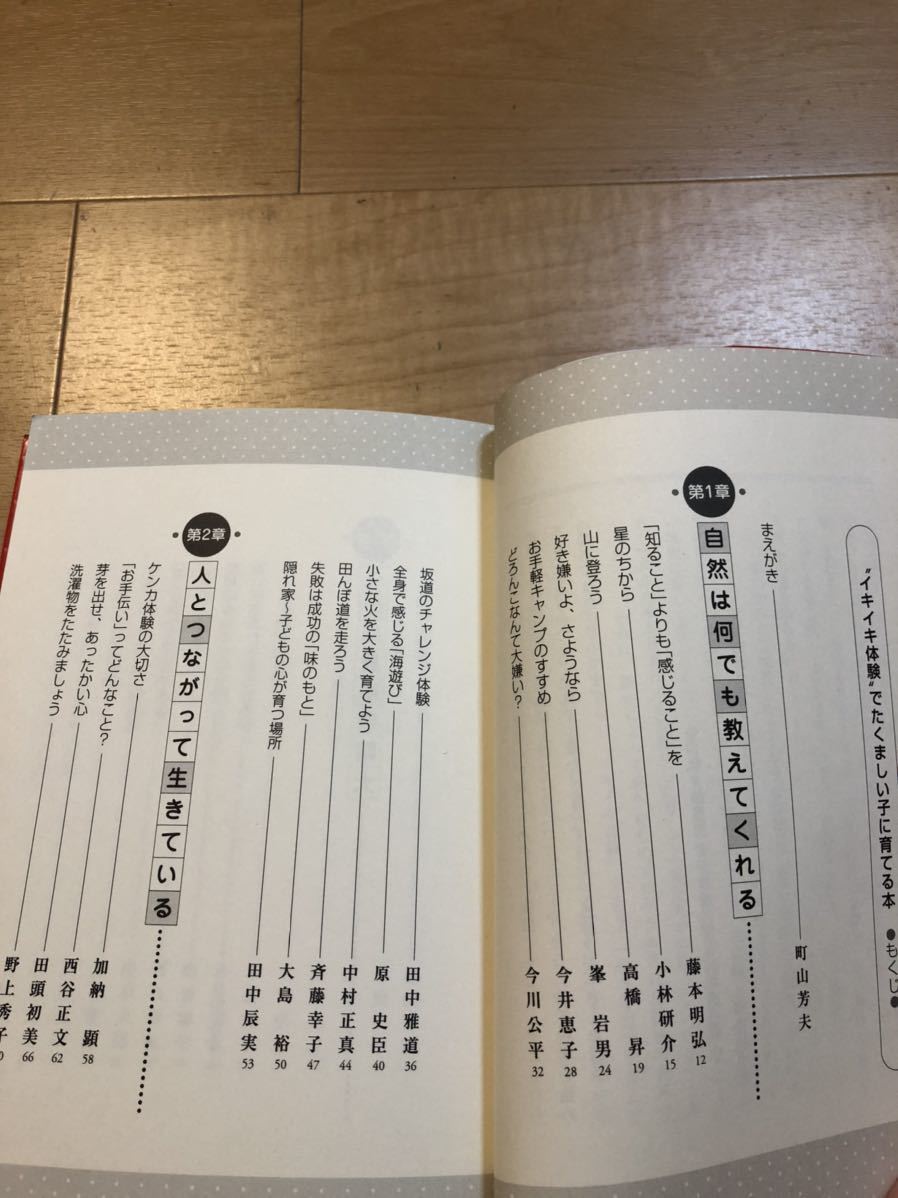 “イキイキ体験”でたくましい子に育てる本 ●もくじ●
まえがき 町山芳夫
第1章 自然は何でも教えてくれる
「知ること」よりも「感じること」を 藤本明弘 12
星のちから 小林研介 15
山に登ろう 高橋 昇 19
好き嫌いよ、さようなら 峯 岩男 24
お手軽キャンプのすすめ 今井恵子 28
どろんこなんて大嫌い? 今川公平 32
坂道のチャレンジ体験 田中雅道 36
全身で感じる「海遊び」 原 史臣 40
小さな火を大きく育てよう 中村正真 44
田んぼ道を走ろう 斉藤幸子 47
失敗は成功の「味のもと」 大島 裕 50
隠れ家〜子どもの心が育つ場所 田中辰実 53
第2章 人とつながって生きている
ケンカ体験の大切さ 加納 顕 58
「お手伝い」ってどんなこと? 西谷正文 62
芽を出せ、あったかい心 田頭初美 66
洗濯物をたたみましょう 野上秀子